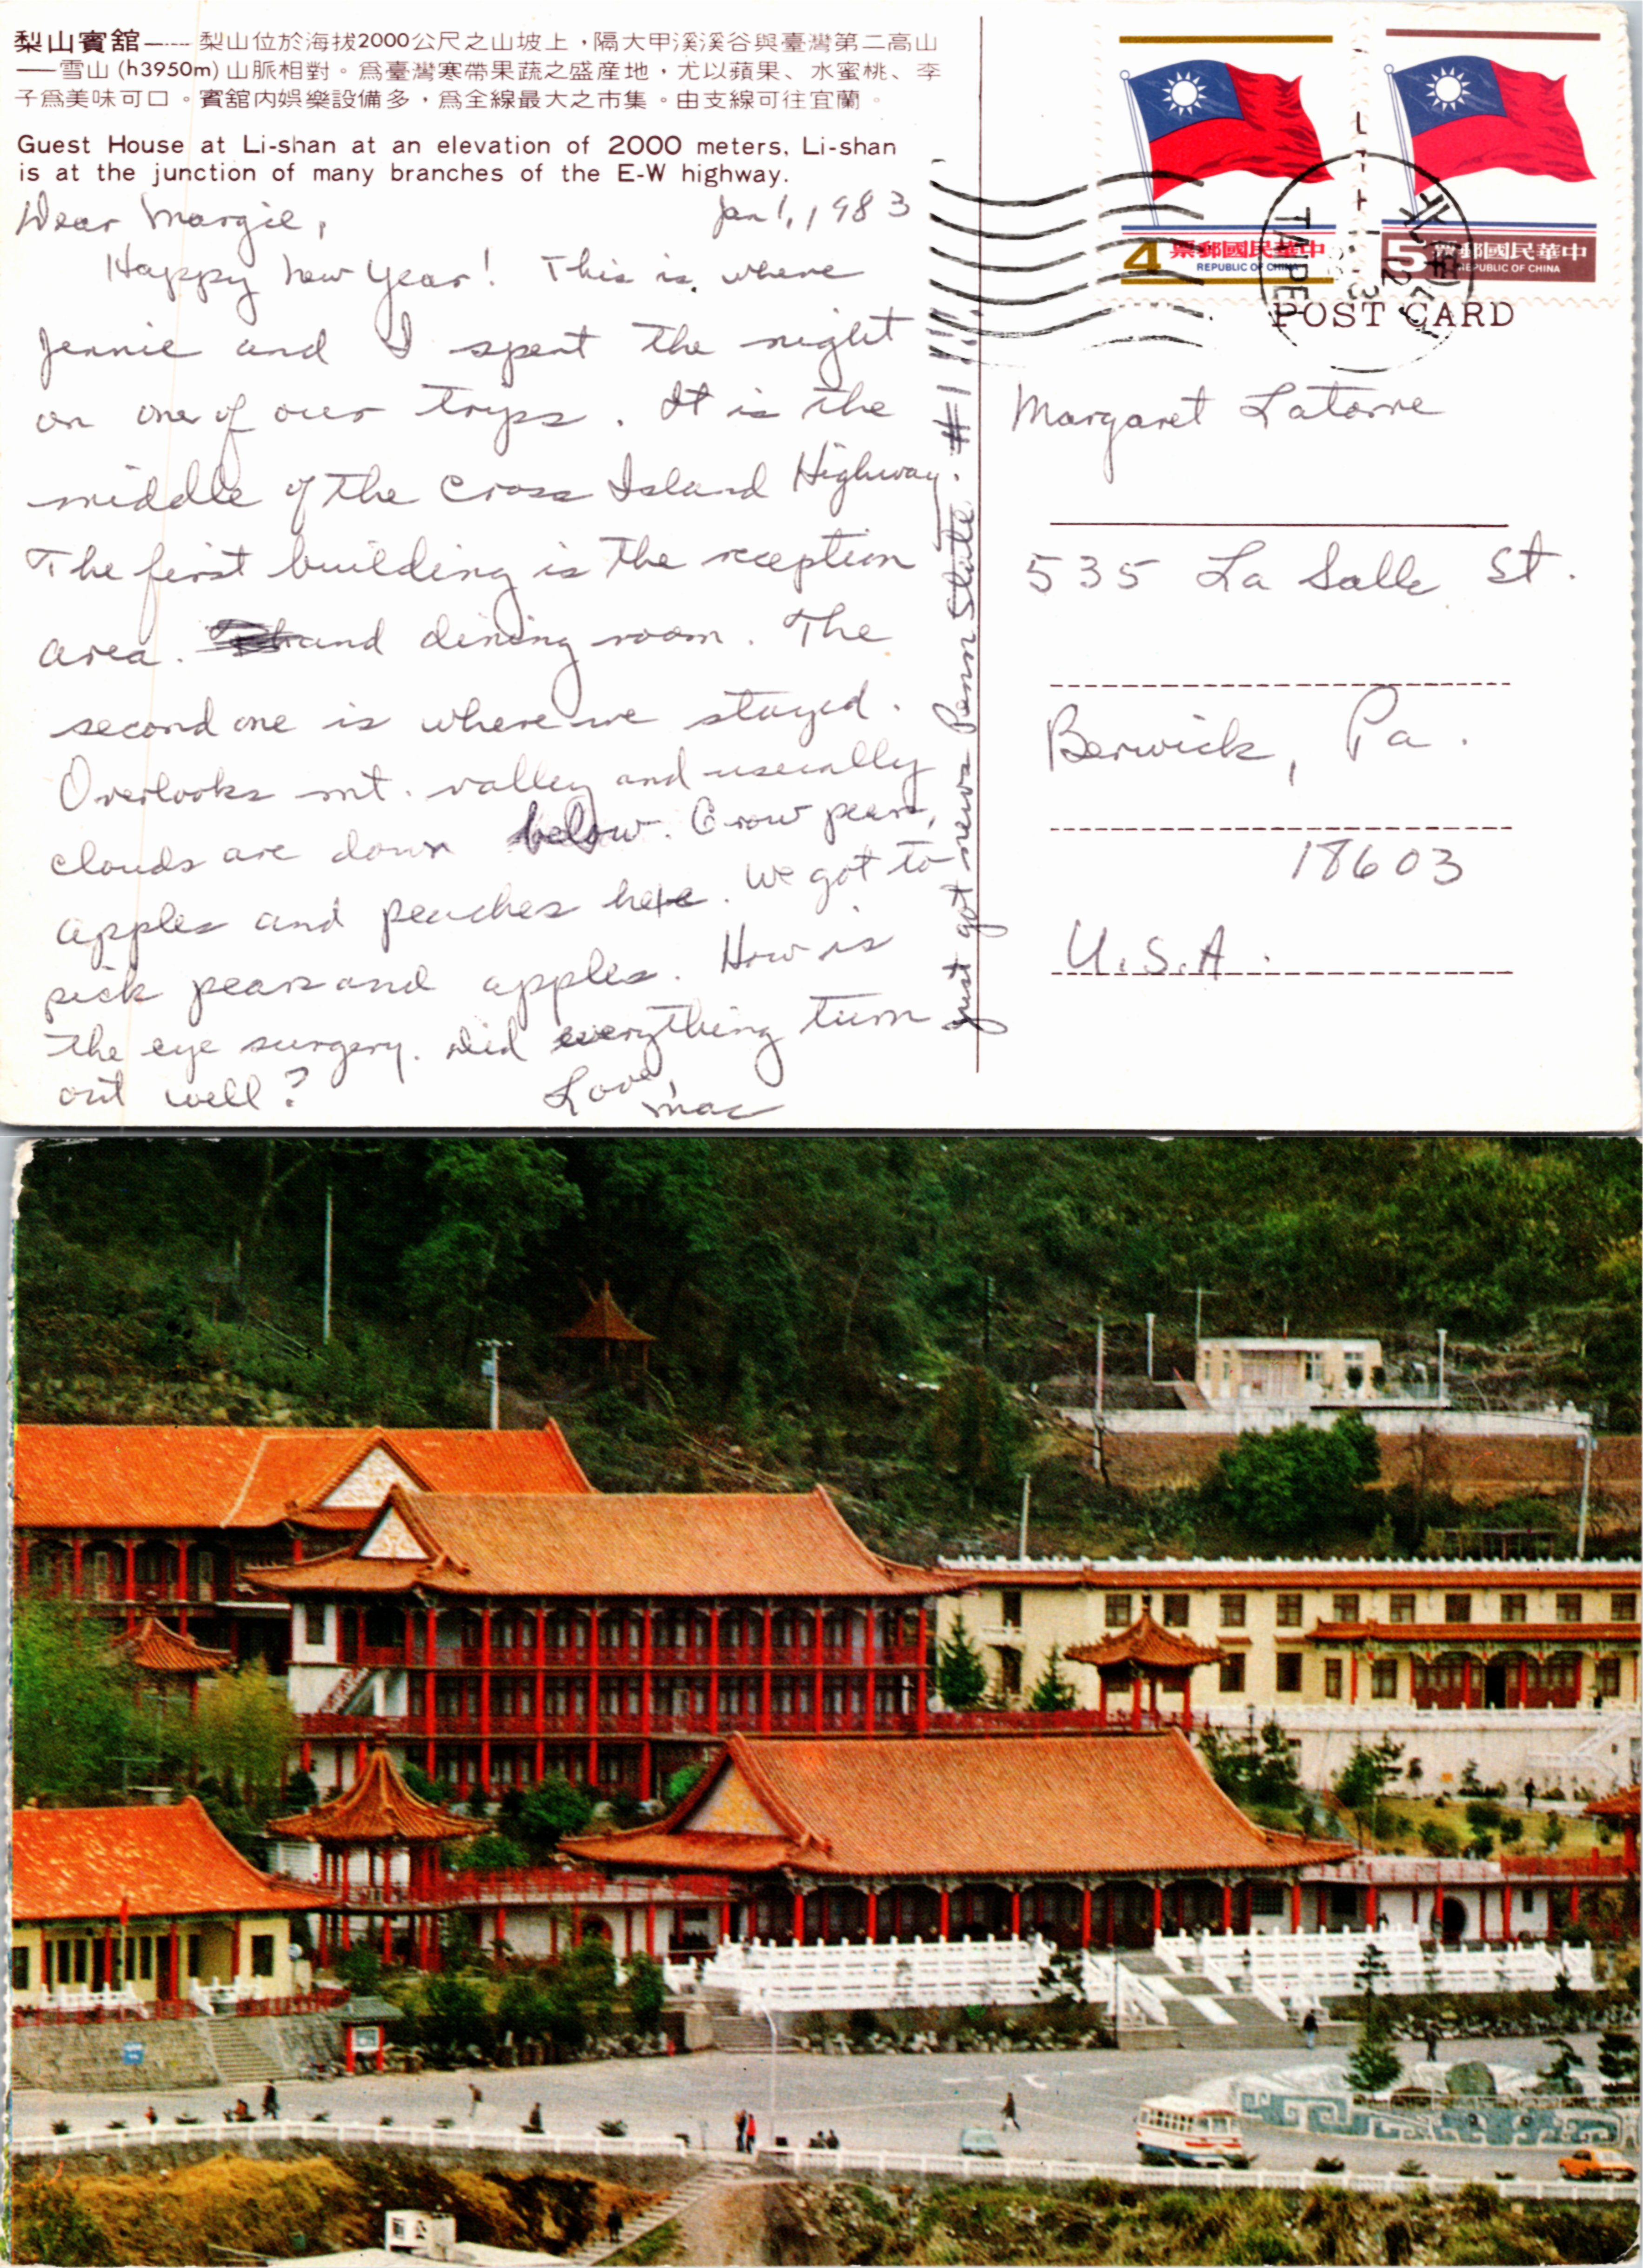 梨山賓舘——梨山位於海拔2000公尺之山坡上，隔大甲溪溪谷與臺灣第二高山
——雪山(h3950m)山脈相對。爲臺灣寒帶果蔬之盛産地，尤以蘋果、水蜜桃、李
子爲美味可口。賓舘内娯樂設備多，爲全線最大之市集。由支線可往宜蘭。
Guest House at Li-shan at an elevation of 2000 meters, Li-shan
is at the junction of many branches of the E-W highway.
Jan 1, 1983
Dear Margie,
Happy New Year! This is where
Jennie and I spent the night
on one of our tryps. It is the
middle of the Cross Island Highway.
The first building is the reception
area. and dining room. The
second one is where we stayed.
Overlooks mt. valley and usually
clouds are down below. Grow pears,
apples and peaches here. We got to
pick pears and apples. How is
the eye surgery. Did everything turn
out well?
Love,
Mac
Just got news Penn State #1!!!!
4 票郵國民華中
REPUBLIC OF CHINA
5 票郵國民華中
REPUBLIC OF CHINA
TAIPEI
POST CARD
Margaret Latorre
535 La Salle St.
Berwick, Pa.
18603
U.S.A.